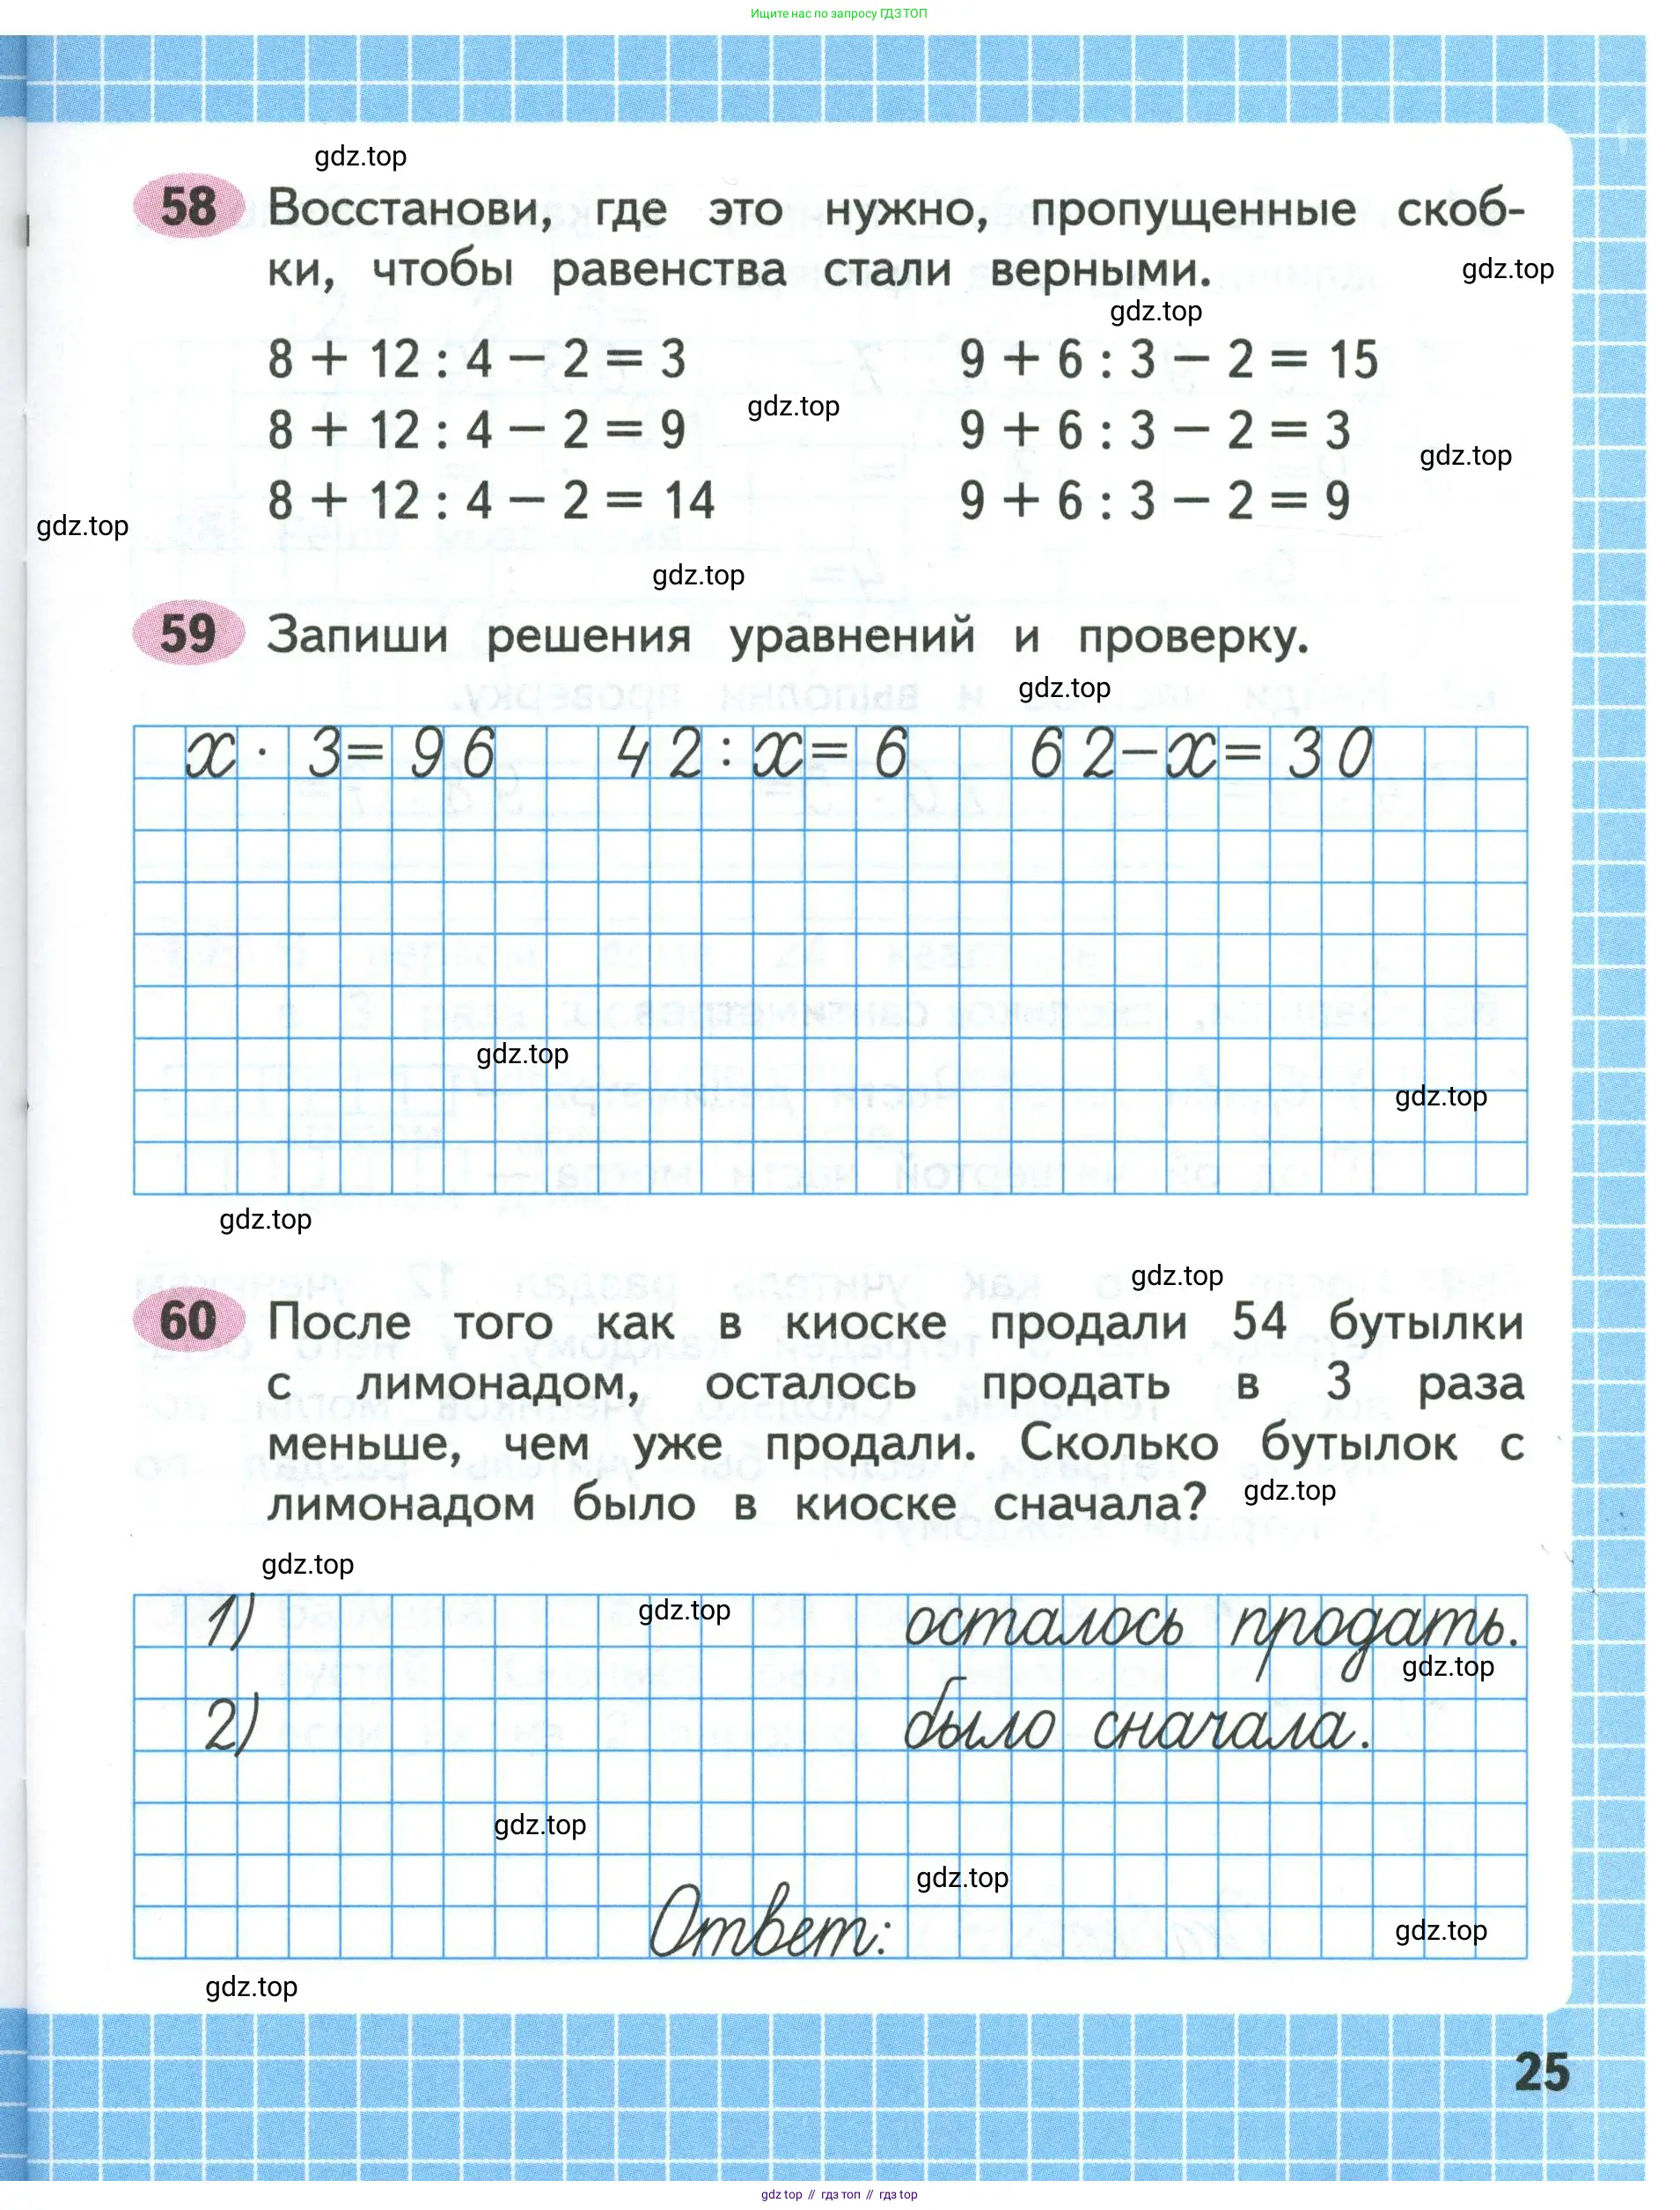 Ищите нас по запросу ГДЗ ТОП
gdz.top
58 Восстанови, где это нужно, пропущенные скоб-
ки, чтобы равенства стали верными.
gdz.top
gdz.top
8 + 12 : 4 − 2 = 3 9 + 6 : 3 − 2 = 15
gdz.top
8 + 12 : 4 − 2 = 9 9 + 6 : 3 − 2 = 3
gdz.top
8 + 12 : 4 − 2 = 14 9 + 6 : 3 − 2 = 9
gdz.top
gdz.top
59 Запиши решения уравнений и проверку.
gdz.top
x · 3 = 96 42 : x = 6 62 − x = 30
gdz.top
gdz.top
gdz.top
gdz.top
60 После того как в киоске продали 54 бутылки
с лимонадом, осталось продать в 3 раза
меньше, чем уже продали. Сколько бутылок с
лимонадом было в киоске сначала?
gdz.top
gdz.top
1) gdz.top осталось продать.
gdz.top
2) было сначала.
gdz.top
gdz.top
Ответ: gdz.top
gdz.top
25
gdz.top // гдз топ // гдз top